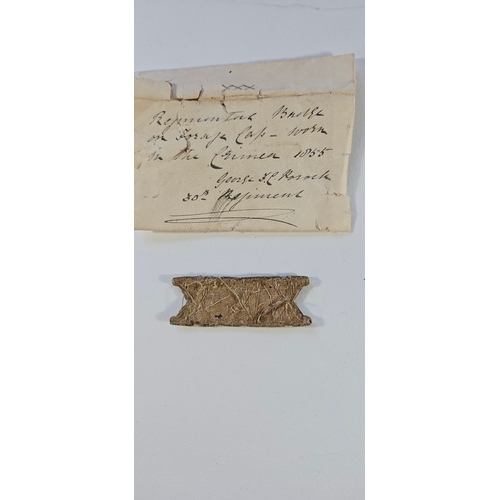 Regimental Badge
on Forage Cap - worn
in the Crimea 1855
George F C Pocock
30th Regiment